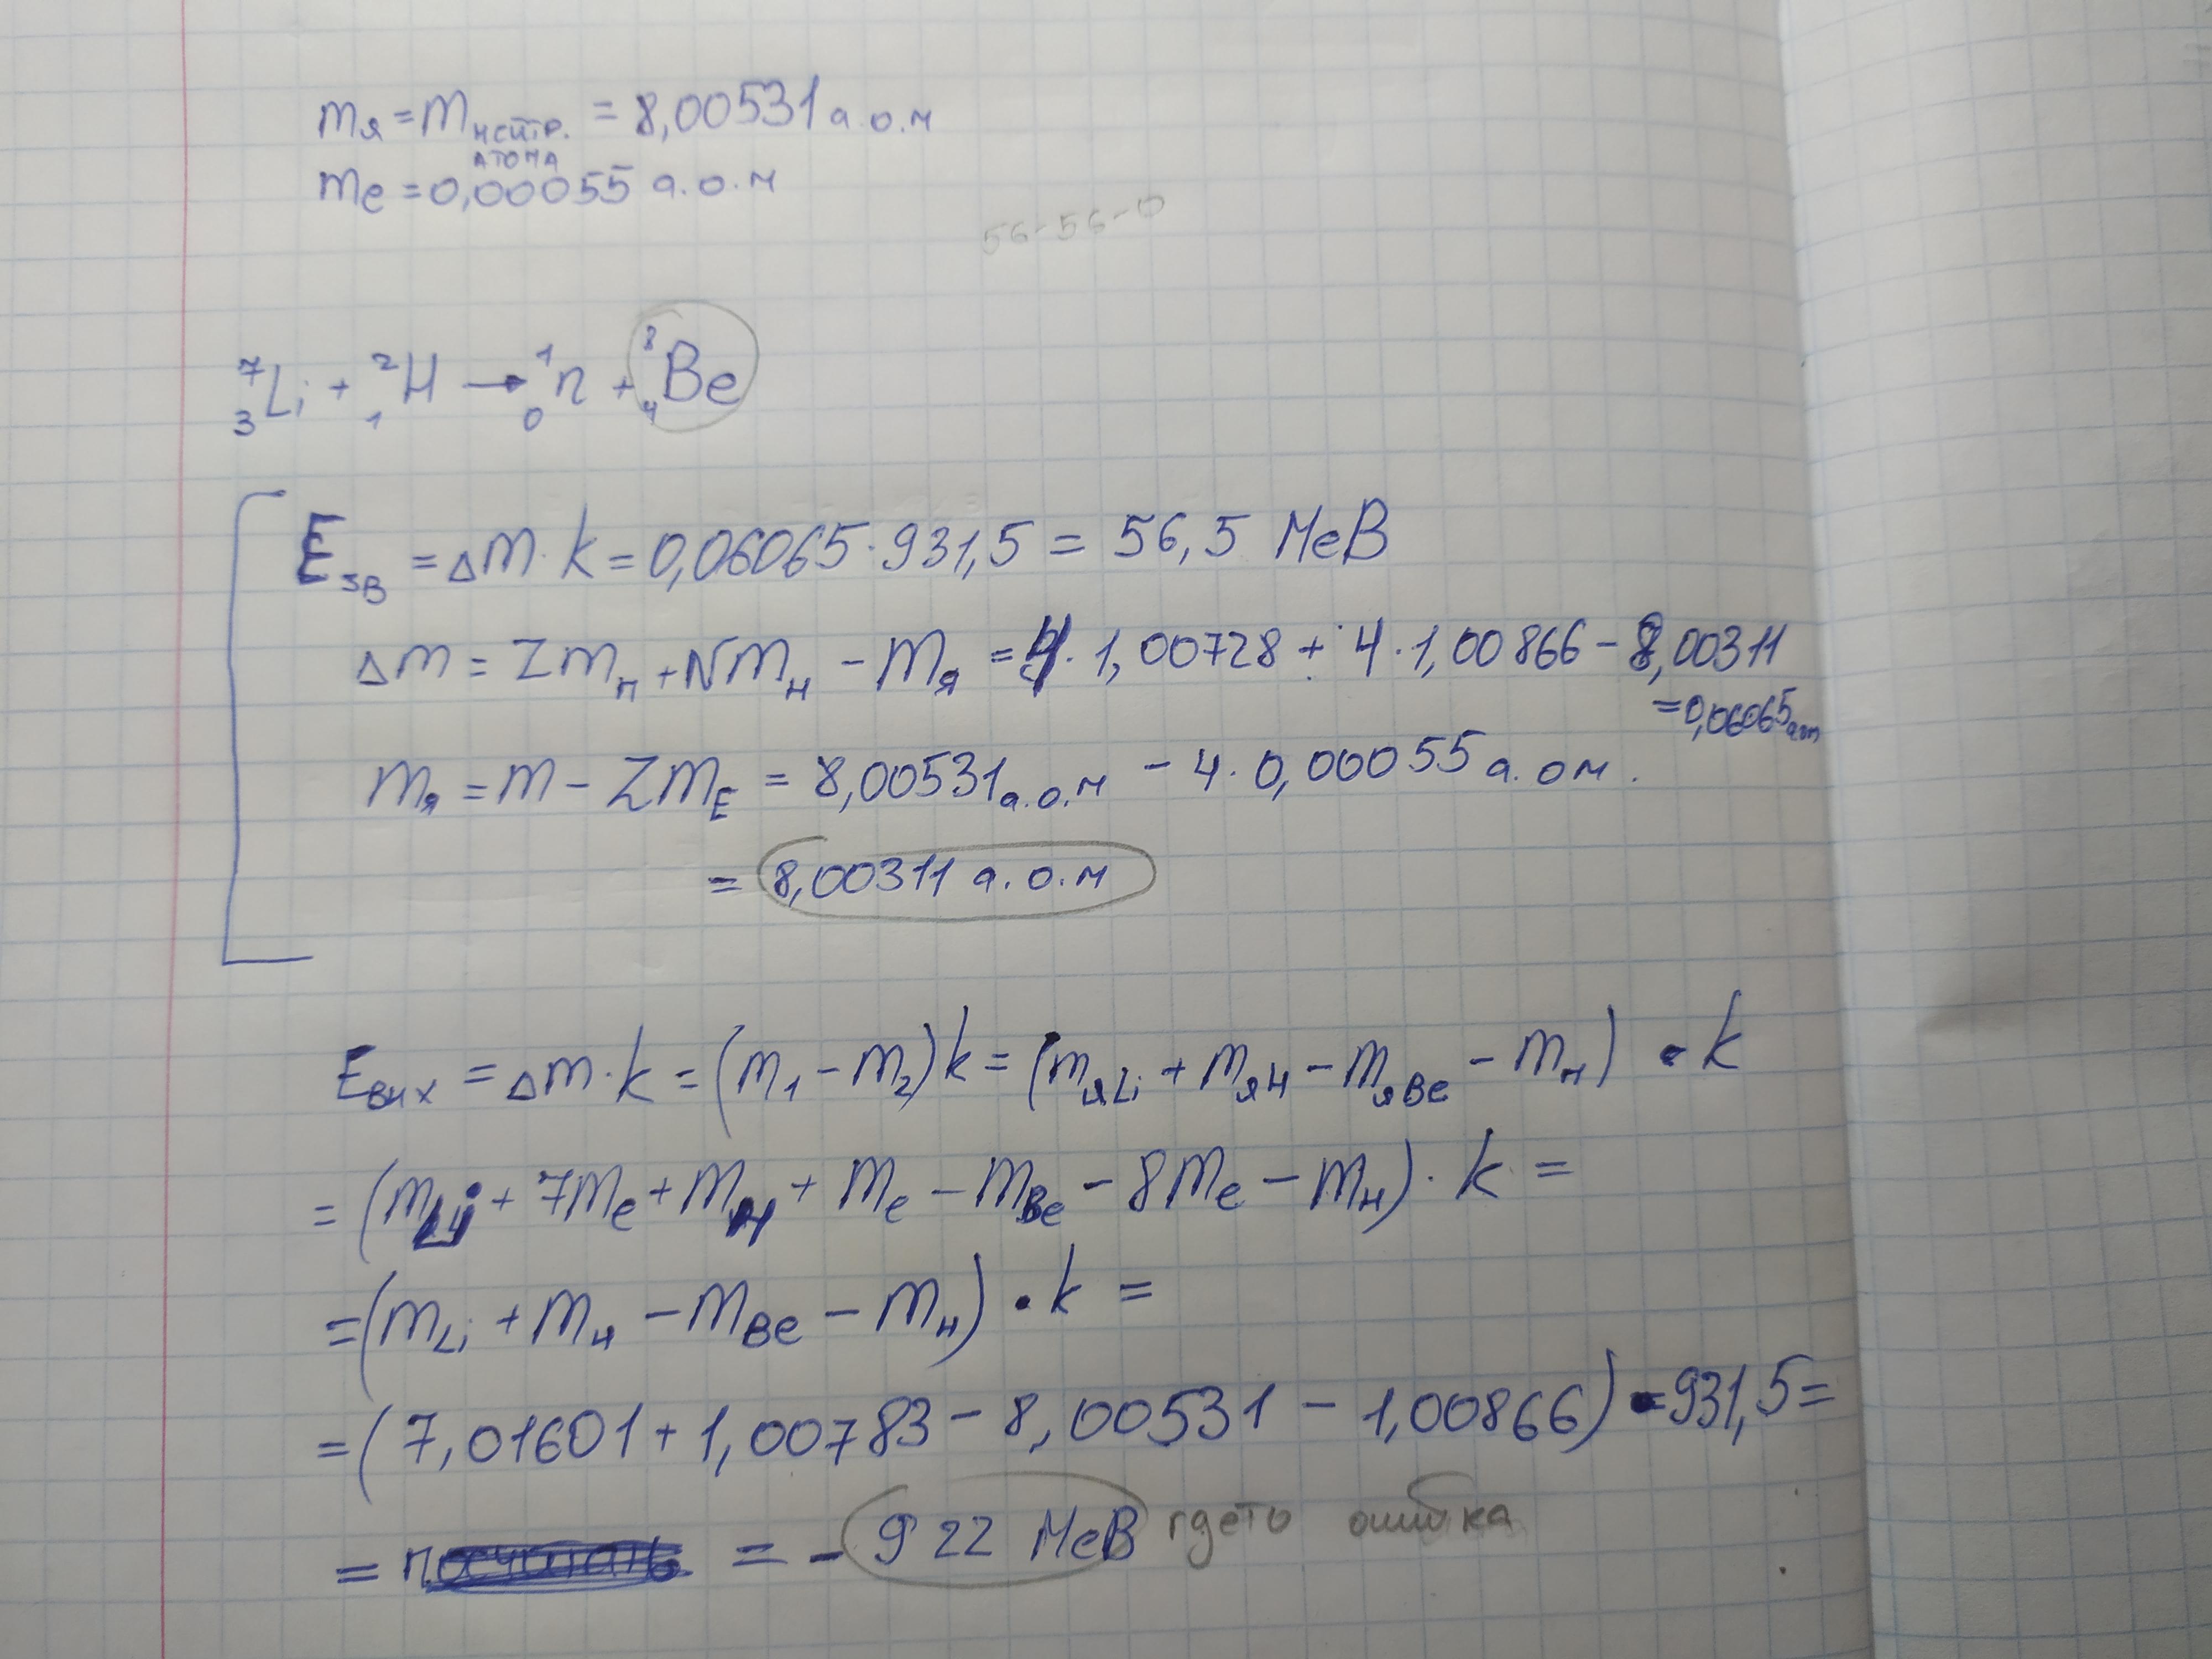 mя = m нейтр. атома = 8,00531 а.о.м
me = 0,00055 а.о.м
56-56-0
⁷₃Li + ²₁H → ¹₀n + ⁸₄Be
Eзв = Δm · k = 0,06065 · 931,5 = 56,5 МеВ
Δm = Zmп + Nmн - mя = 4 · 1,00728 + 4 · 1,00866 - 8,00311
= 0,06065 аом
mя = m - ZmE = 8,00531 а.о.м - 4 · 0,00055 а.ом.
= 8,00311 а.о.м
Eвих = Δm · k = (m₁ - m₂)k = (mяLi + mяH - mяBe - mн) · k
= (mLi + 7me + mH + me - mBe - 8me - mн) · k =
= (mLi + mH - mBe - mн) · k =
= (7,01601 + 1,00783 - 8,00531 - 1,00866) · 931,5 =
= = - 922 МеВ гдето ошибка